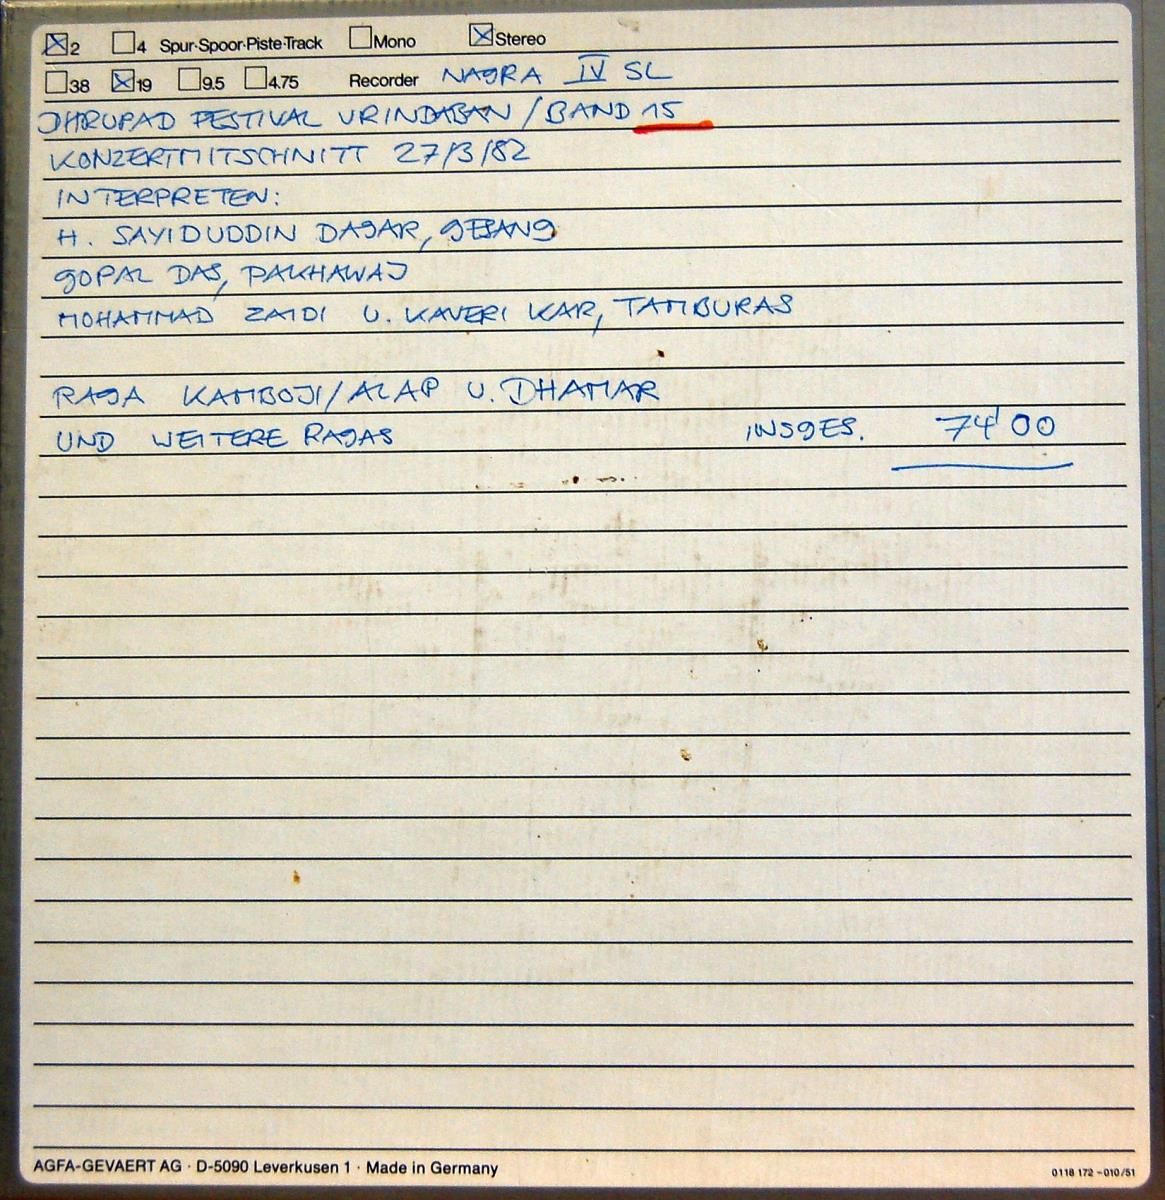 ☒2 ☐4 Spur·Spoor·Piste·Track ☐Mono ☒Stereo
☐38 ☒19 ☐9.5 ☐4.75 Recorder NAGRA IV SL
DHRUPAD FESTIVAL VRINDABAN / BAND 15
KONZERTMITSCHNITT 27/3/82
INTERPRETEN:
H. SAYIDUDDIN DAGAR, GESANG
GOPAL DAS, PAKHAWAJ
MOHAMMAD ZAIDI U. KAVERI KAR, TAMBURAS
RAGA KAMBOJI/ALAP U. DHAMAR
UND WEITERE RAGAS INSGES. 74'00
AGFA-GEVAERT AG · D-5090 Leverkusen 1 · Made in Germany
0118 172 - 010/51